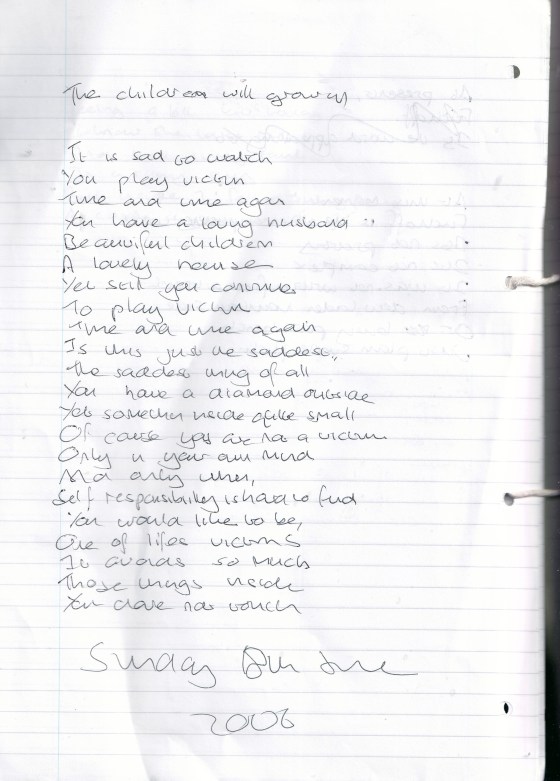 The children will grow up
It is sad to watch
You play victim
Time and time again
You have a loving husband
Beautiful children
A lovely house
Yet still you continue
To play victim
Time and time again
Is this just the saddest,
The saddest thing of all
You have a diamond outside
Yet something inside quite small
Of cause you are not a victim
Only in your own mind
And only when,
Self responsibility is hard to find
You would like to be,
One of lifes victims
It avoids so much
Those things inside
You dare not touch
Sunday June
2006